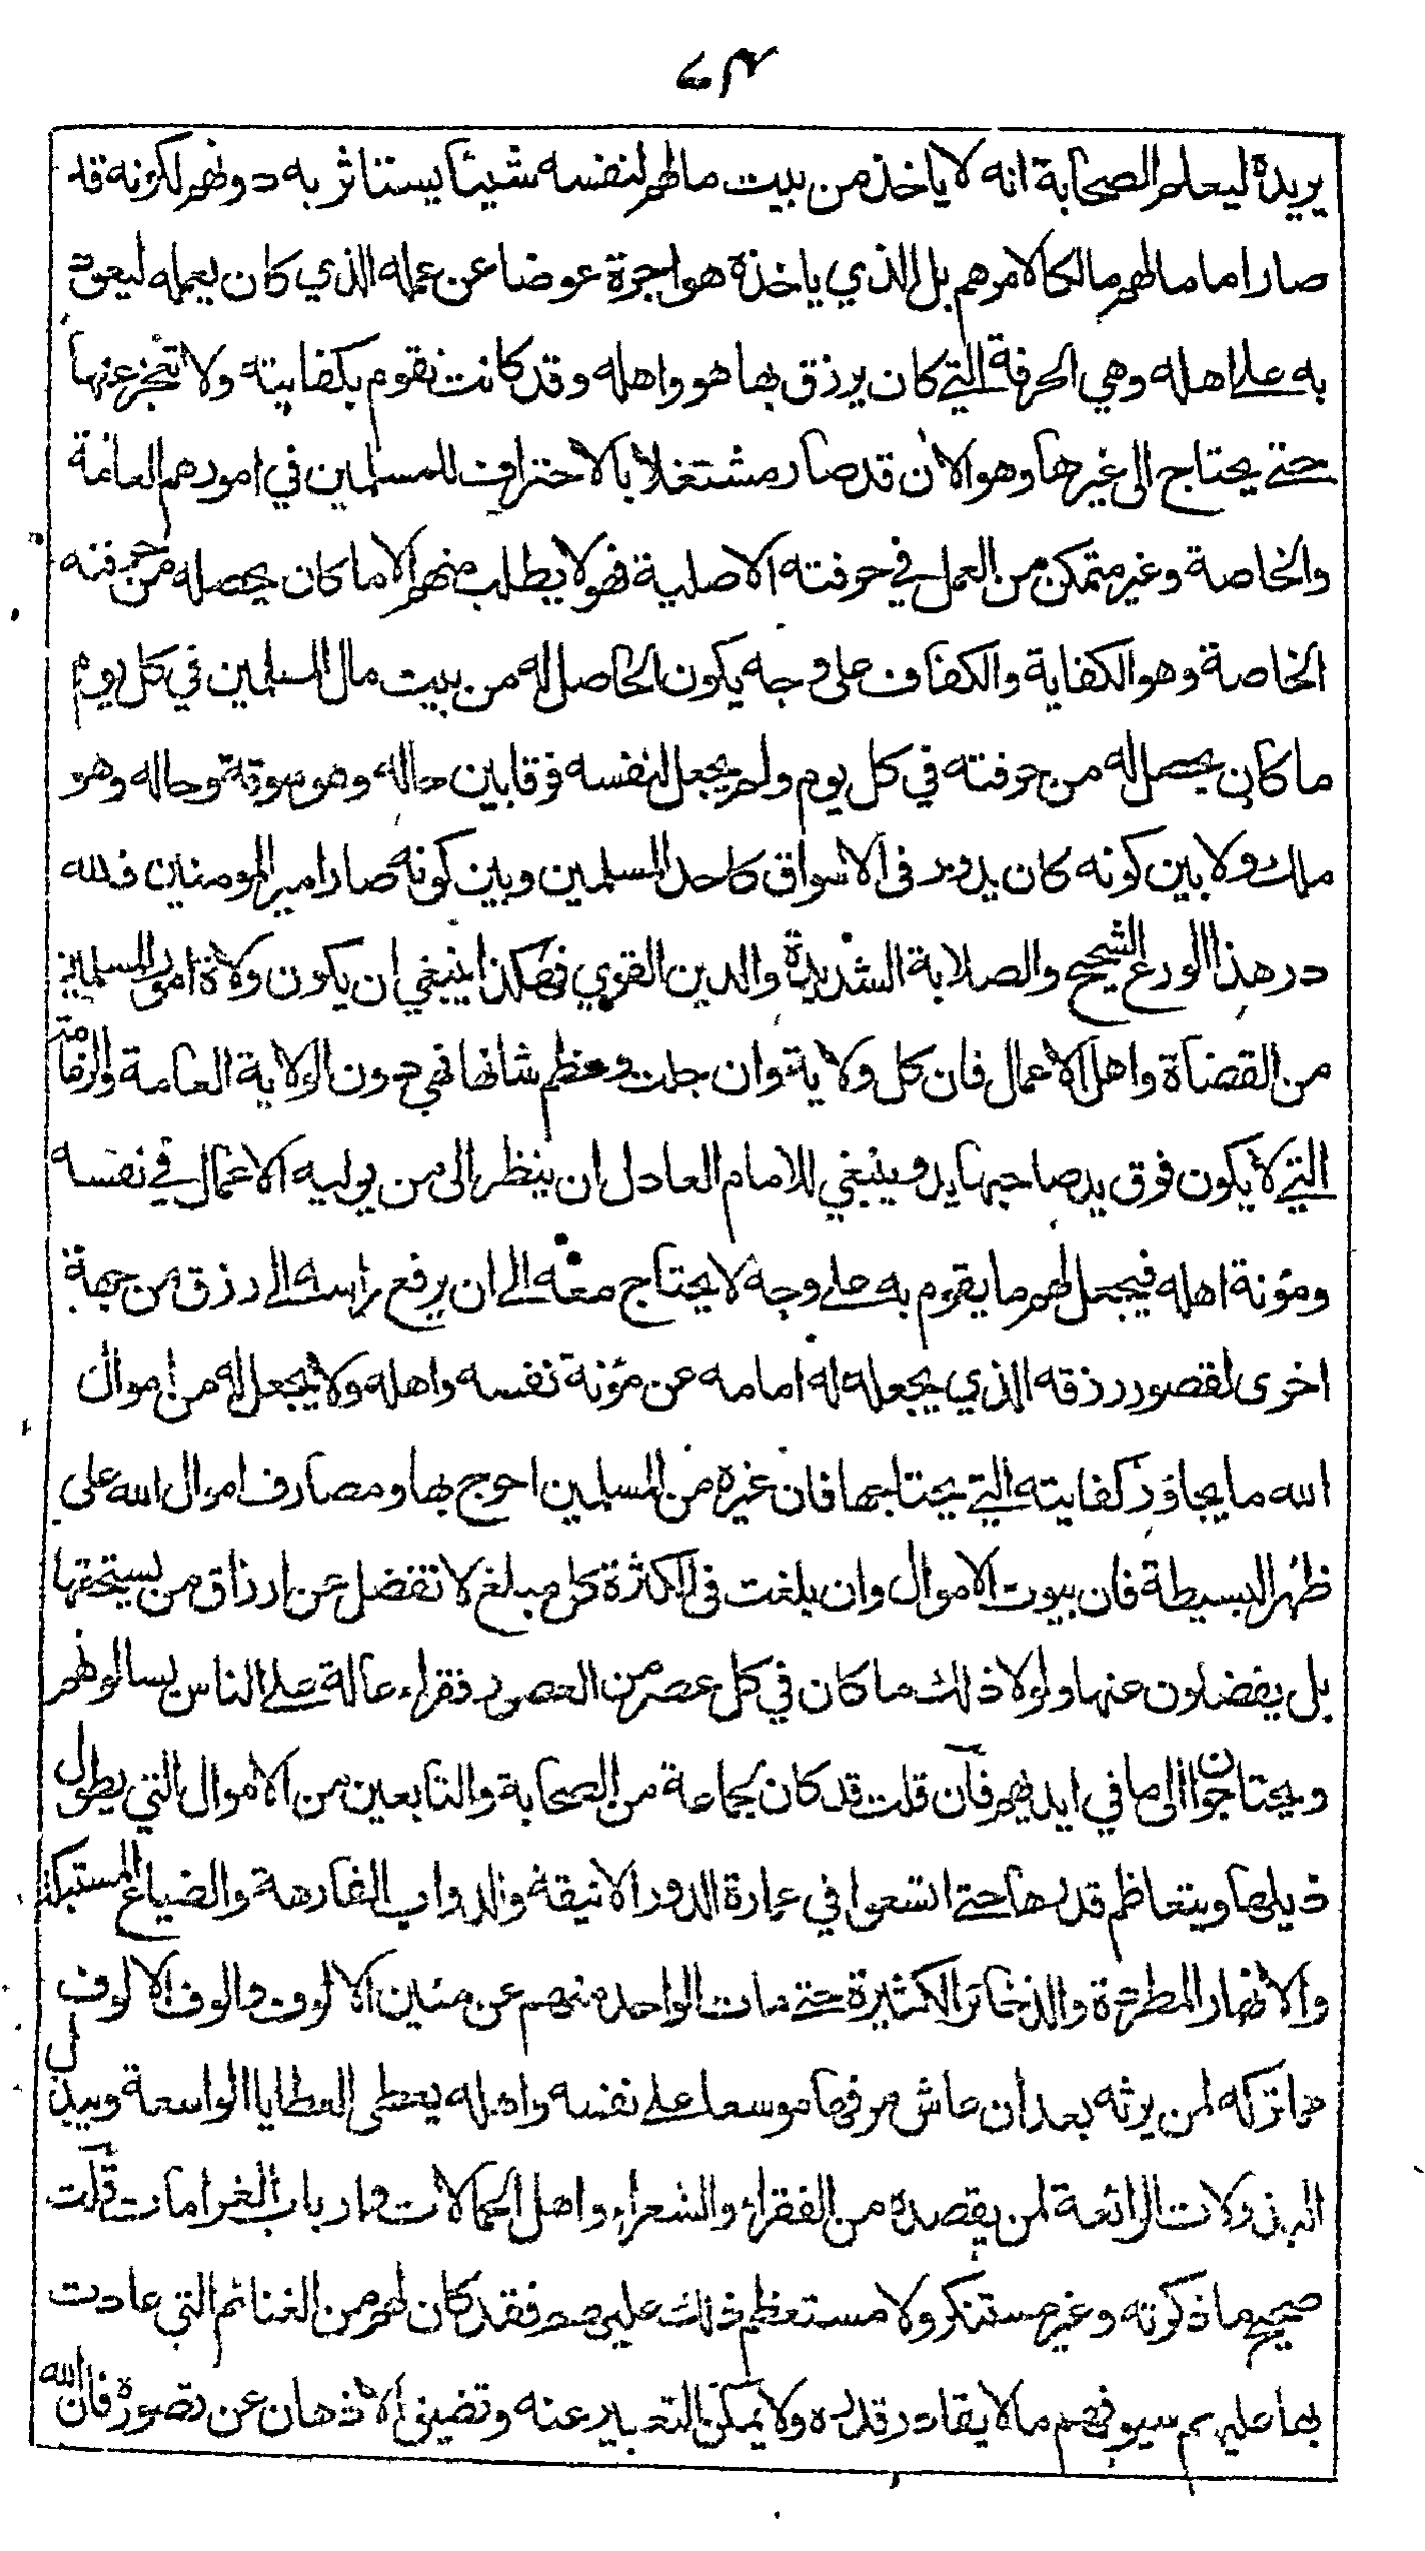 يريده ليعلم الصحابة انه لا ياخذ من بيت مالهم لنفسه شيئا يستاثر به دونهم لكونه قد
صار اماما لهم مالكا لامرهم بل الذي ياخذه هو اجرة عوضا عن عمله الذي كان يعمله ليعود
به على اهله وهي الحرفة التي كان يرزق بها هو واهله وقد كانت تقوم بكفايته ولا تعجز عنها
حتى يحتاج الى غيرها وهو الان قد صار مشتغلا بالاحتراف للمسلمين في امورهم العامة
والخاصة وغير متمكن من العمل في حرفته الاصلية فهو لا يطلب منهم الا ما كان يحصله من حرفته
الخاصة وهو الكفاية والكفاف على وجه يكون الحاصل له من بيت مال المسلمين في كل يوم
ما كان يحصل له من حرفته في كل يوم ولم يجعل لنفسه فرقا بين حاله وهو سوقة وحاله وهو
ملك ولا بين كونه كان يدور في الاسواق كاحد المسلمين وبين كونه صار امير المومنين فلله
در هذا الورع الشحيح والصلابة الشديدة والدين القوي فهكذا ينبغي ان يكون ولاة امور المسلمين
من القضاة واهل الاعمال فان كل ولاية وان جلت وعظم شانها فهي دون الولاية العامة والزعامة
التي لا يكون فوق يد صاحبها يد وينبغي للامام العادل ان ينظر الى من يوليه الاعمال في نفسه
ومؤنة اهله فيجعل لهم ما يقوم به على وجه لا يحتاج معه الى ان يرفع راسه الى رزق من جهة
اخرى لقصور رزقه الذي يجعله له امامه عن مؤنة نفسه واهله ولا يجعل له من اموال
الله ما يجاوز كفايته التي يحتاجها فان غيره من المسلمين احوج بها ومصارف اموال الله على
ظهر البسيطة فان بيوت الاموال وان بلغت في الكثرة كل مبلغ لا تفضل عن ارزاق من يستحقها
بل يفضلون عنها ولولا ذلك ما كان في كل عصر من العصور فقراء عالة على الناس يسالونهم
ويحتاجون الى ما في ايديهم فان قلت قد كان لجماعة من الصحابة والتابعين من الاموال التي يطول
ذيلها ويتعاظم قدرها حتى اتسعوا في عمارة الدور الانيقة والدواب الفارهة والضياع المستكثرة
والانهار المطردة والذخائر الكثيرة حتى مات الواحد منهم عن مئين الالوف والوف الالوف
مما تركه لمن يرثه بعد ان عاش مرفها موسعا على نفسه واهله يعطى العطايا الواسعة ويبذل
البذولات الرائعة لمن يقصده من الفقراء والشعراء واهل الحمالات وارباب الغرامات قلت
صحيح ما ذكرته وغير مستنكر ولا مستعظم ذلك عليهم فقد كان لهم من الغنائم التي عادت
بها عليهم سيوفهم ما لا يقادر قدره ولا يمكن التعبير عنه وتضيق الاذهان عن تصوره فان الله